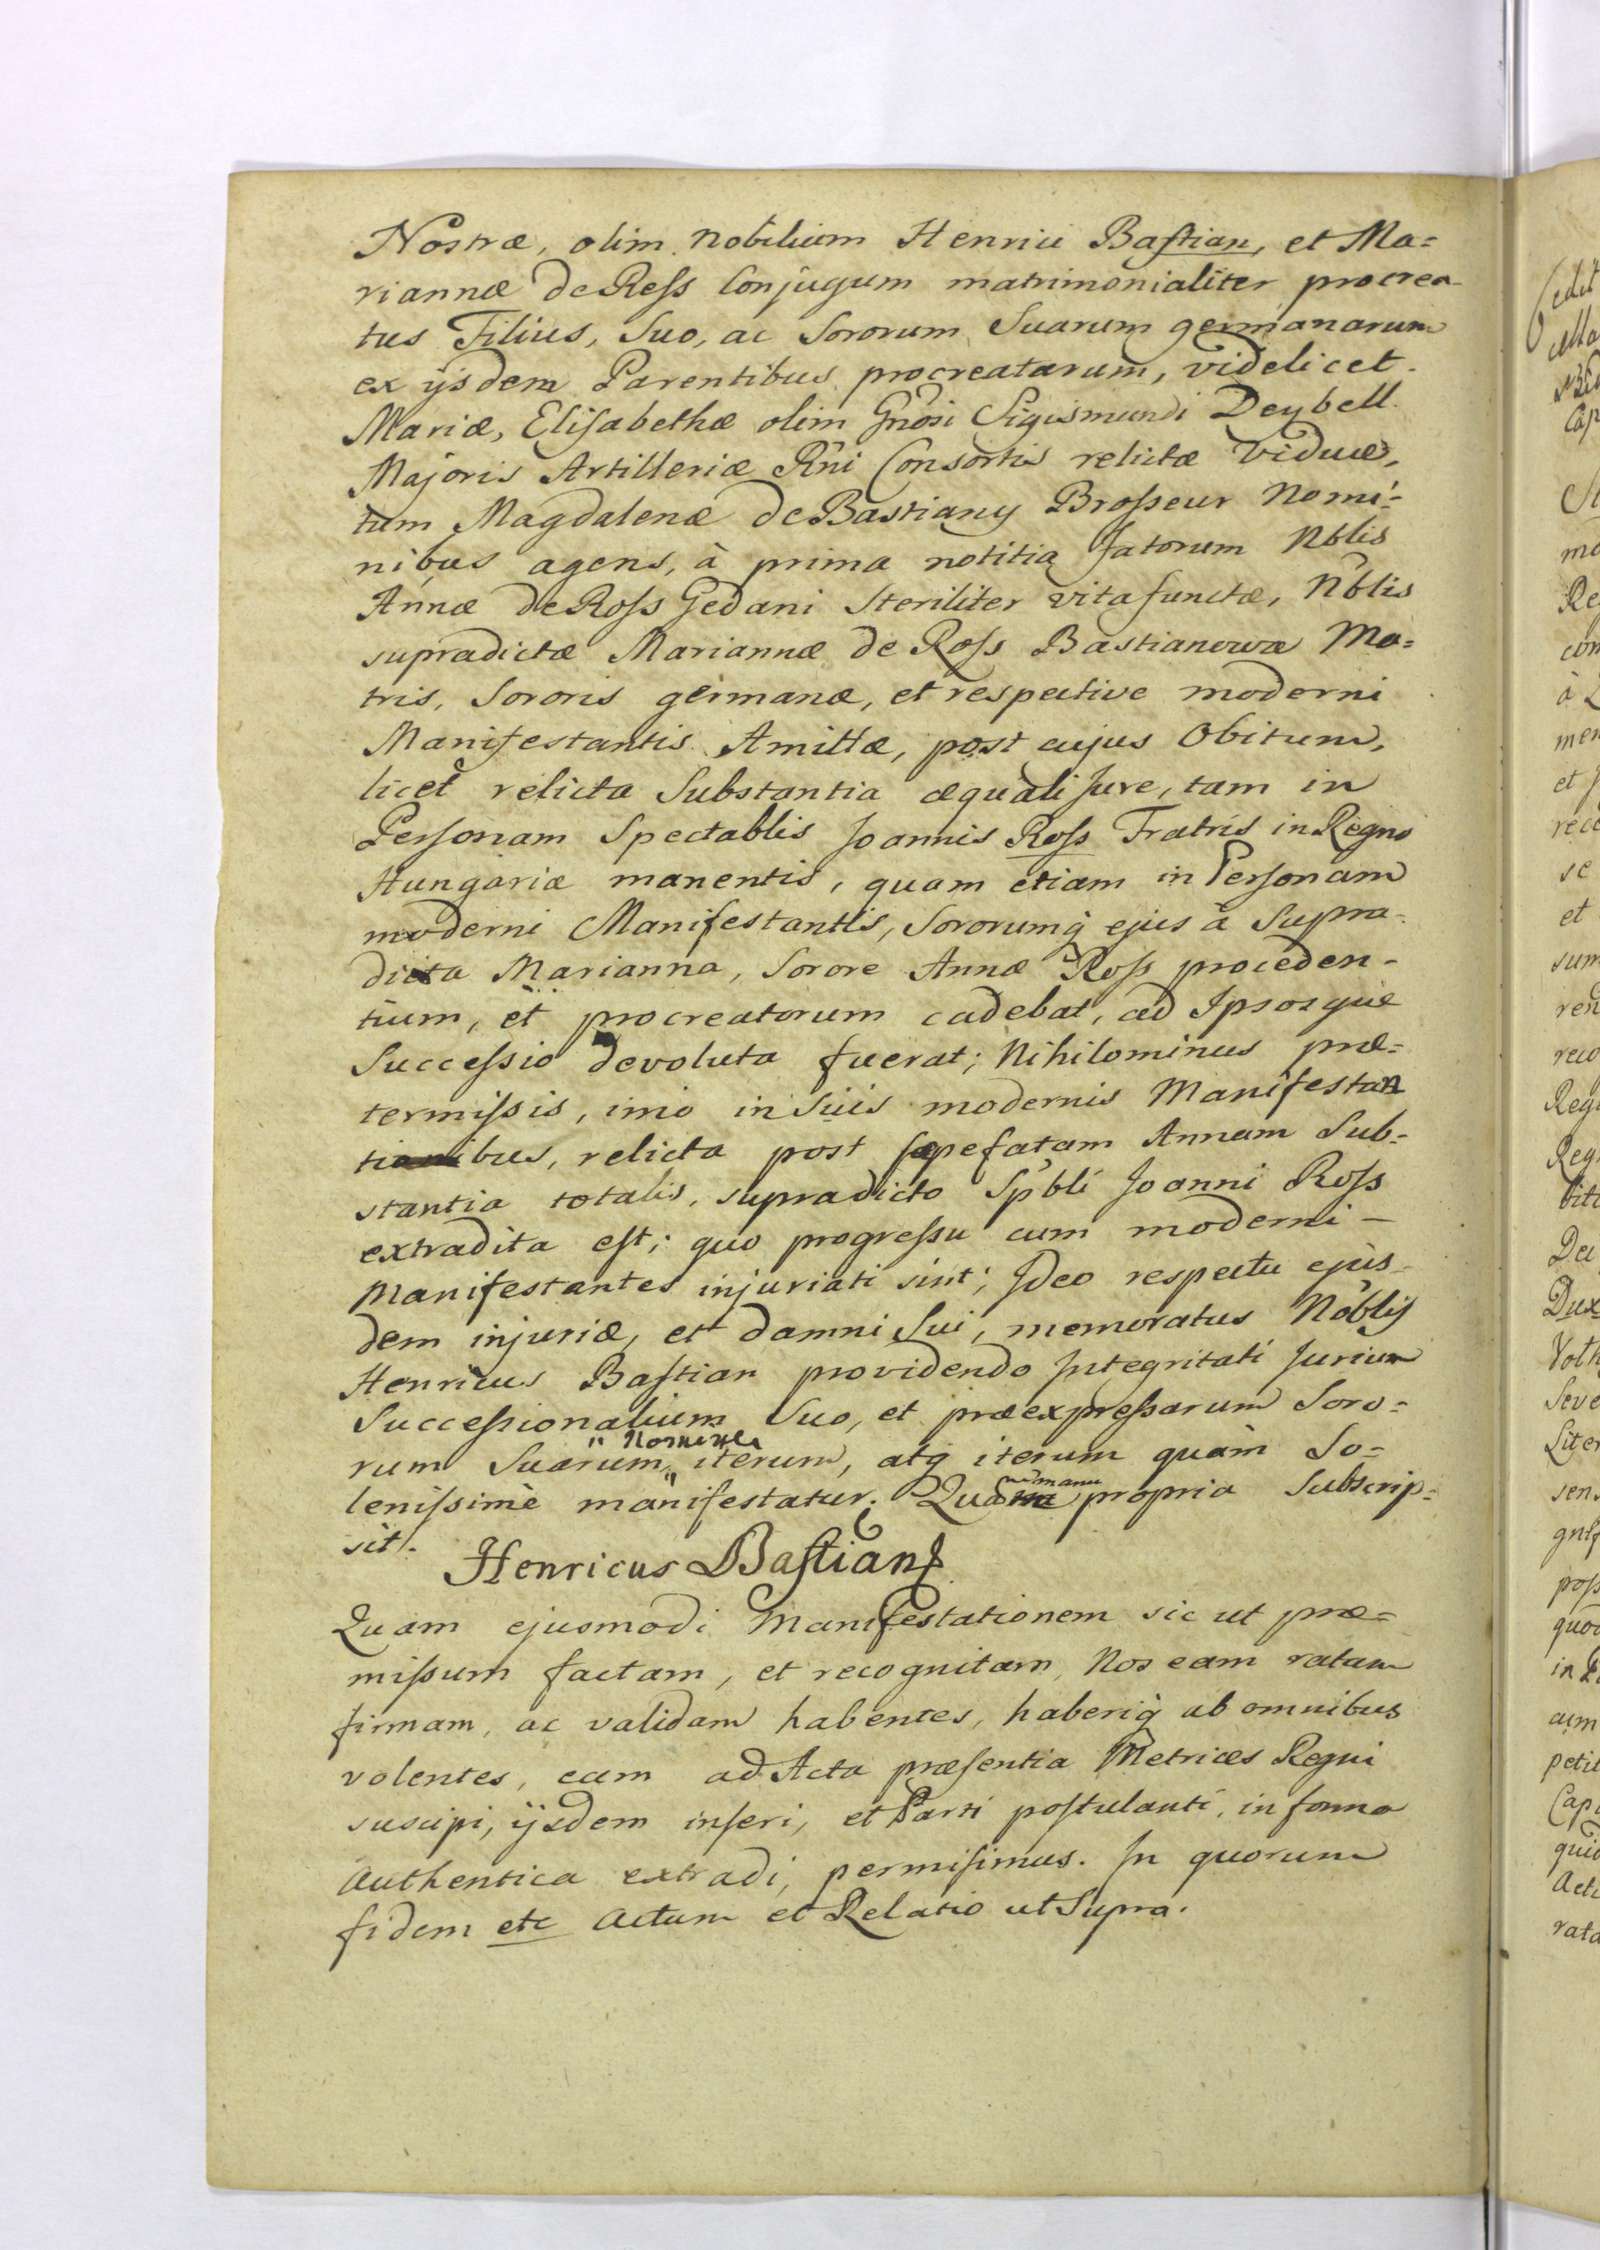 Nostræ, olim nobilium Henrici Bastian, et Ma=
riannæ de Ross Conjugum matrimonialiter procrea-
tus Filius, Suo, ac Sororum Suarum germanarum
ex ijsdem Parentibus procreatarum, videlicet
Mariæ, Elisabethæ olim Gnosi Sigismundi Deybell
Majoris Artilleriæ Rni Consortis relictæ Viduæ,
tum Magdalenæ de Bastiany Brosseur Nomi=
nibus agens, à prima notitia fatorum Nblis
Annæ de Ross Gedani Steriliter vita functæ, Nblis
supradictæ Mariannæ de Ross Bastianowæ Ma=
tris, Sororis germanæ, et respective moderni
Manifestantis Amittæ, post cujus Obitum,
licet relicta Substantia æquali Jure, tam in
Personam Spectablis Joannis Ross Fratris in Regno
Hungariæ manentis, quam etiam in Personam
moderni Manifestantis, Sororumq ejus à Supra-
dicta Marianna, Sorore Annæ Ross proceden-
tium, et procreatorum cadebat, ad Ipsosque
Successio devoluta fuerat; Nihilominus præ=
termissis, imo in Suis modernis Manifestan
tibus, relicta post sæpefatam Annam Sub=
stantia totalis, supradicto Spbli Joanni Ross
extradita est; quo progressu cum moderni -
Manifestantes injuriati sint; Ideo respectu ejus-
dem injuriæ, et damni Sui, memoratus Noblis
Henricus Bastian providendo Integritati Jurium
Successionalium Suo, et præexpressarum Soro=
rum Suarum " Nomine " iterum, atq iterum quàm So=
lenissimè manifestatur. Quam manu propria Subscrip=
sit.
Henricus Bastian
Quam ejusmodi Manifestationem sic ut præ=
missum factam, et recognitam, Nos eam ratam
firmam, ac validam habentes, haberiq ab omnibus
volentes, eam ad Acta præsentia Metrices Regni
suscipi, ijsdem inseri, et Parti postulanti, in forma
authentica extradi, permisimus. In quorum
fidem etc Actum et Relatio ut Supra.